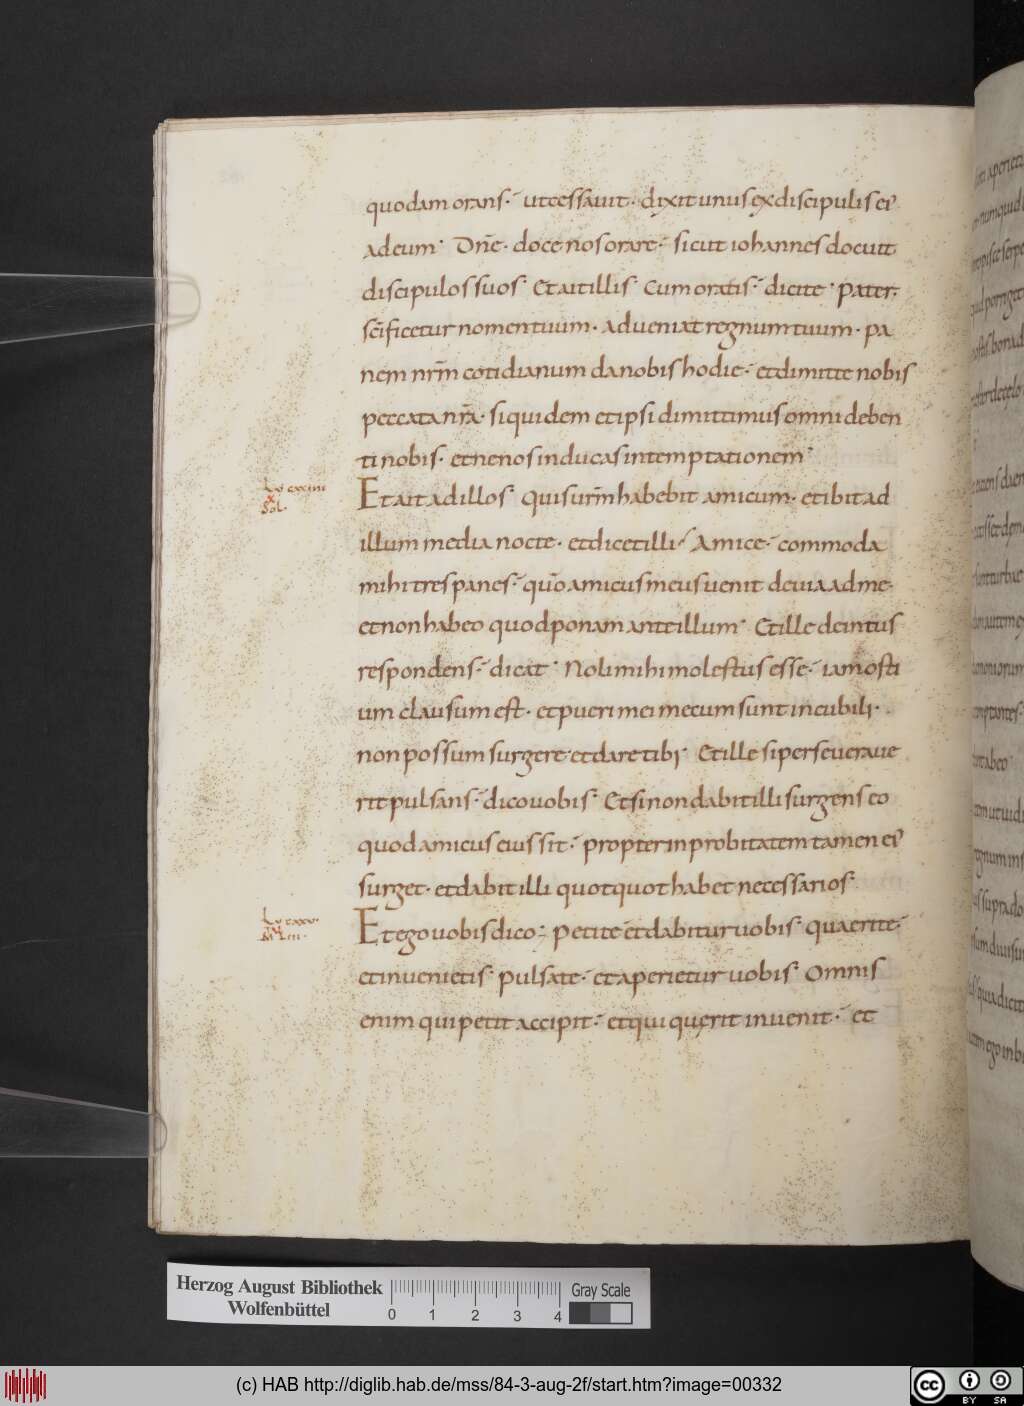 quodam orans. ut cessauit. dixit unus ex discipulis ei'
ad eum. Dn̄e. doce nos orare. sicut iohannes docuit
discipulos suos. Et ait illis. Cum oratis. dicite. Pater.
sc̄ificetur nomen tuum. adueniat regnum tuum. pa
nem nr̄m cotidianum da nobis hodie. et dimitte nobis
peccata nr̄a. siquidem et ipsi dimittimus omni deben
ti nobis. et ne nos inducas in temptationem.
Lv cxxiiii
X
Sol.
Et ait ad illos. quis ur̄m habebit amicum. et ibit ad
illum media nocte. et dicet illi. Amice. commoda
mihi tres panes. quō amicus meus uenit de uia ad me.
et non habeo quod ponam ante illum. Et ille deintus
respondens. dicat. Noli mihi molestus esse. iam osti
um clausum est. et pueri mei mecum sunt in cubili.
non possum surgere et dare tibi. Et ille si perseueraue
rit pulsans. dico uobis. Et si non dabit illi surgens eo
quod amicus eius sit. propter inprobitatem tamen ei'
surget. et dabit illi quotquot habet necessarios.
Lv cxxv
Et ego uobis dico. Petite et dabitur uobis. quaerite.
et inuenietis. pulsate. et aperietur uobis. Omnis
enim qui petit accipit. et qui quęrit inuenit. et
Herzog August Bibliothek
Wolfenbüttel
0 1 2 3 4
Gray Scale
(c) HAB http://diglib.hab.de/mss/84-3-aug-2f/start.htm?image=00332
cc BY SA